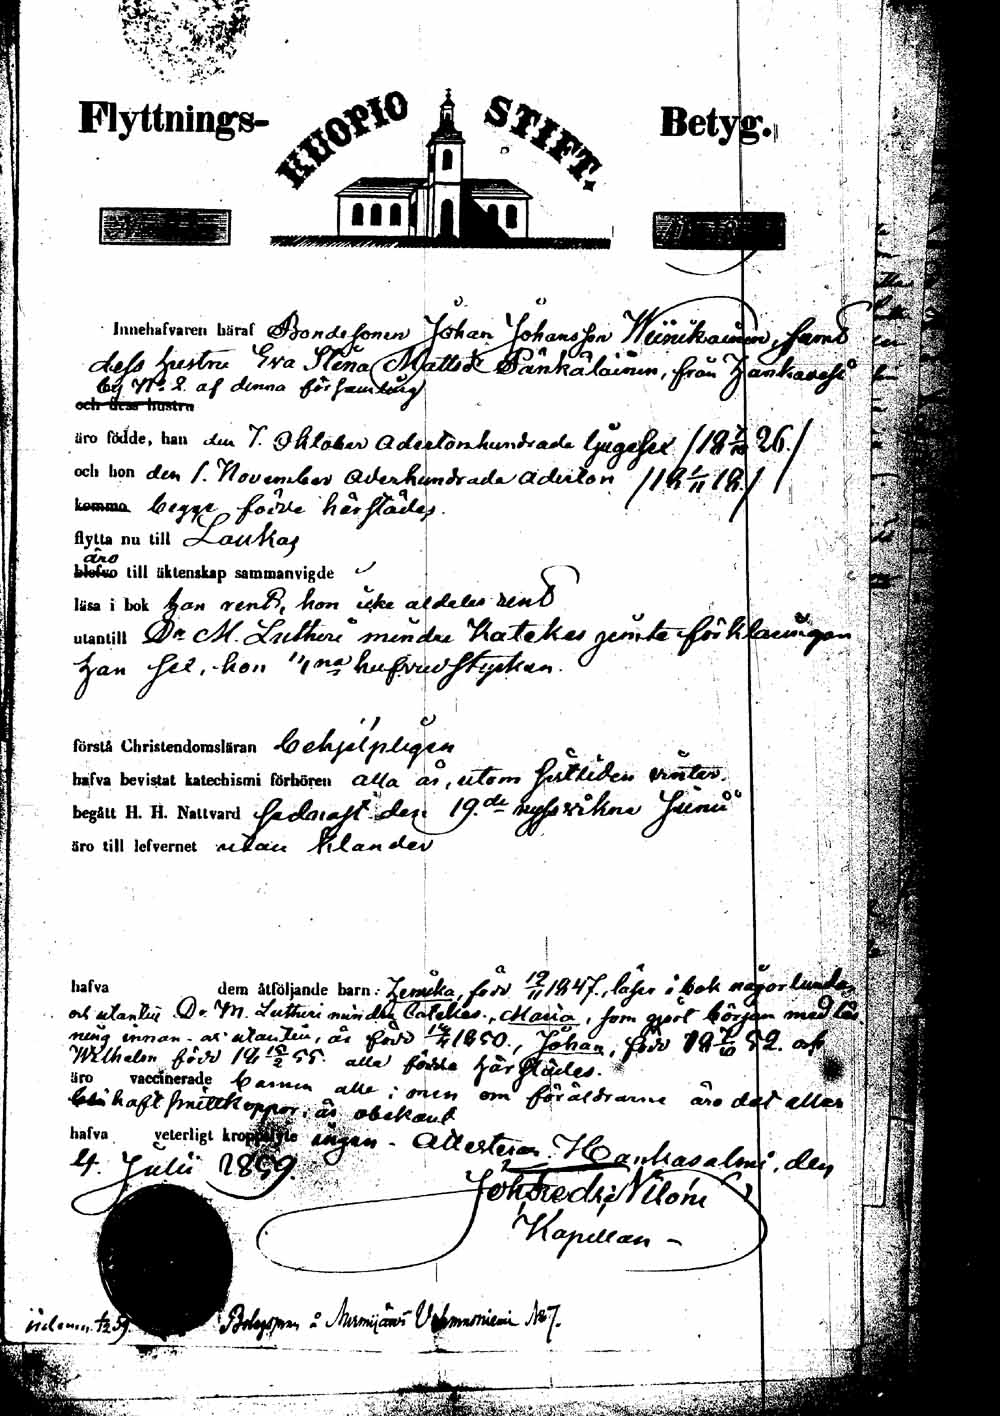 Flyttnings-
KUOPIO STIFT.
Betyg.
Innehafvaren häraf Bondesonen Johan Johansson Wiinikainen, samt
dess hustru Eva Stena Mattsd. Pänkäläinen, från Hankavesi
by No 2. af denna församling
och dess hustru
äro födde, han den 7. Oktober adertonhundrade tjugesex /18 7/10 26./
och hon den 1. November aderhundrade aderton /18 1/11 18./
komma begge födde härstädes.
flytta nu till Laukas
äro
blefvo till äktenskap sammanvigde
läsa i bok han rent, hon icke aldeles rent
utantill Dr M. Lutheri mindre Katekes jemte förklaringen
han hel, hon 4na hufvudstycken.
förstå Christendomsläran behjelpligen
hafva bevistat katechismi förhören alla år, utom sistliden vinter.
begått H. H. Nattvard sednast den 19.de nyssvikne Junii
äro till lefvernet utan klander
hafva dem åtföljande barn: Henrika, född 19/11 1847., läser i bok någorlunda
och utantill Dr M. Lutheri mindre Catekes., Maria, som gjort början med läs-
ning innan- o. utantill, är född 1850., Johan, född 18 52. och
Wilhelm född 18 55. alla födde härstädes.
äro vaccinerade barnen alla; men om föräldrarne äro det eller
haft smittkoppor, är obekant
hafva veterligt kroppslyte ingen. - Attesterar. Hankasalmi, den
4. Julii 1859.
Joh. Fredr. Niloni
Kapellan -
Bolagsman å Nurmijärvi No 7.